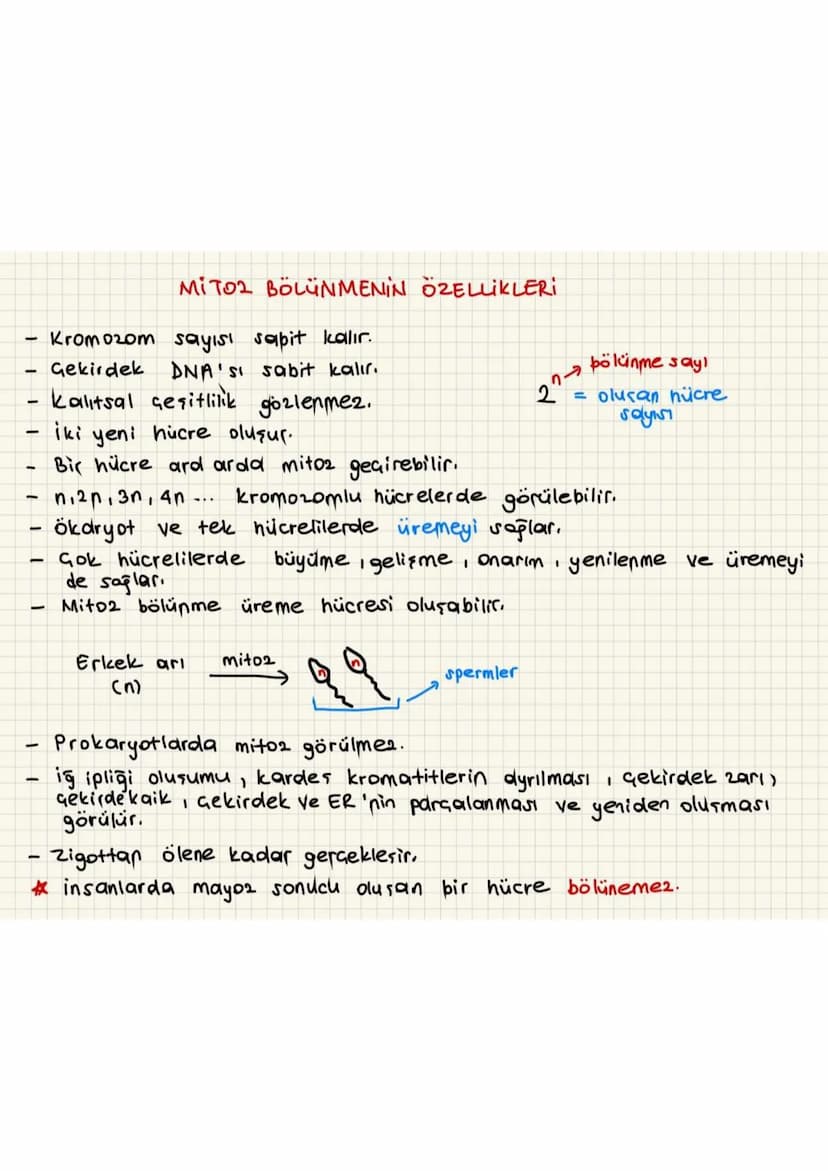 MİTOZ BÖLÜNMENİN ÖZELLİKLERİ
- Kromozom sayısı sabit kalır.
- Çekirdek DNA'sı sabit kalır.
- Kalıtsal çeşitlilik gözlenmez.
n → bölünme sayı
2ⁿ = oluşan hücre
sayısı
- İki yeni hücre oluşur.
- Bir hücre ard arda mitoz geçirebilir.
- n,2n,3n,4n ... kromozomlu hücrelerde görülebilir.
- ökaryot ve tek hücrelilerde üremeyi sağlar.
- Çok hücrelilerde büyüme, gelişme, onarım, yenilenme ve üremeyi
de sağlar.
- Mitoz bölünme üreme hücresi oluşabilir.
Erkek arı mitoz n n spermler
(n)
- Prokaryotlarda mitoz görülmez.
- iğ ipliği oluşumu, kardeş kromatitlerin ayrılması, çekirdek zarı,
çekirdekcik, çekirdek ve ER'nin parçalanması ve yeniden oluşması
görülür.
- Zigottan ölene kadar gerçekleşir.
* insanlarda mayoz sonucu oluşan bir hücre bölünemez.